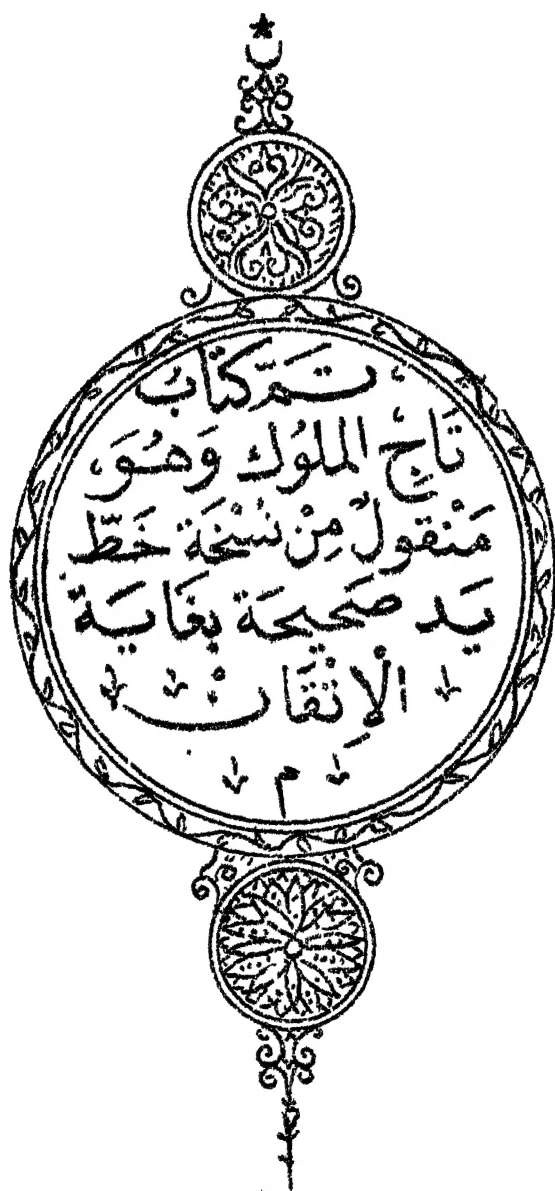 تَمَّ كِتَابُ
تَاجِ الْمُلُوكِ وَهُوَ
مَنْقُولٌ مِنْ نُسْخَةِ خَطِّ
يَدٍ صَحِيحَةٍ بِغَايَةِ
الْإِتْقَانِ
م